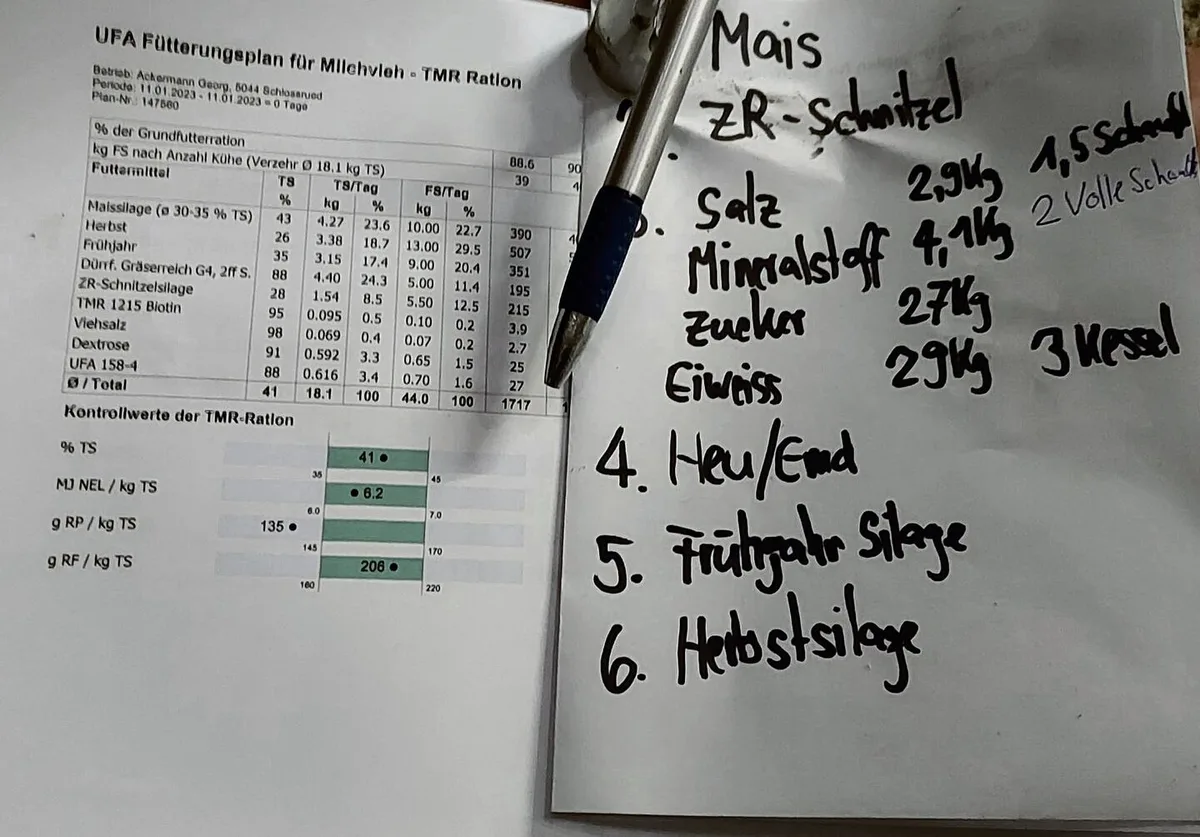 UFA Fütterungsplan für Milchvieh - TMR Ration
Betrieb: Ackermann Georg, 5044 Schlossrued
Periode: 11.01.2023 - 11.01.2023 = 0 Tage
Plan-Nr.: 147560
% der Grundfutterration 88.6 90
kg FS nach Anzahl Kühe (Verzehr Ø 18.1 kg TS) 39 4
Futtermittel TS TS/Tag FS/Tag
% kg % kg %
Maissilage (ø 30-35 % TS) 43 4.27 23.6 10.00 22.7 390
Herbst 26 3.38 18.7 13.00 29.5 507
Frühjahr 35 3.15 17.4 9.00 20.4 351
Dürrf. Gräserreich G4, 2ff S. 88 4.40 24.3 5.00 11.4 195
ZR-Schnitzelsilage 28 1.54 8.5 5.50 12.5 215
TMR 1215 Biotin 95 0.095 0.5 0.10 0.2 3.9
Viehsalz 98 0.069 0.4 0.07 0.2 2.7
Dextrose 91 0.592 3.3 0.65 1.5 25
UFA 158-4 88 0.616 3.4 0.70 1.6 27
Ø / Total 41 18.1 100 44.0 100 1717
Kontrollwerte der TMR-Ration
% TS 41
35 45
MJ NEL / kg TS 6.2
6.0 7.0
g RP / kg TS 135
145 170
g RF / kg TS 206
160 220
Mais
ZR-Schnitzel
Salz 2,9Kg 1,5
Mineralstoff 4,1Kg 2 Volle
Zucker 27Kg
Eiweiss 29Kg 3 Kessel
4. Heu/Emd
5. Frühjahr Silage
6. Herbstsilage